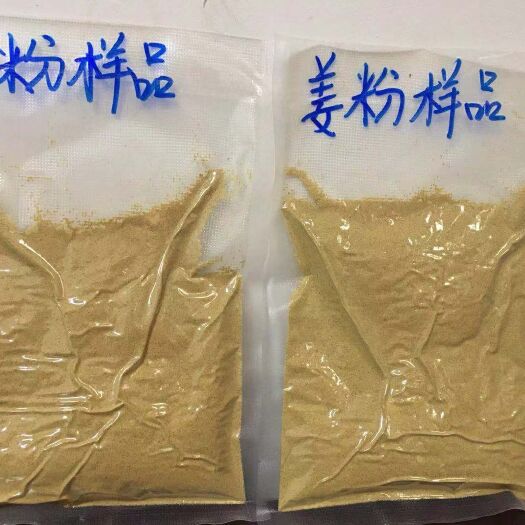 粉样品
姜粉样品